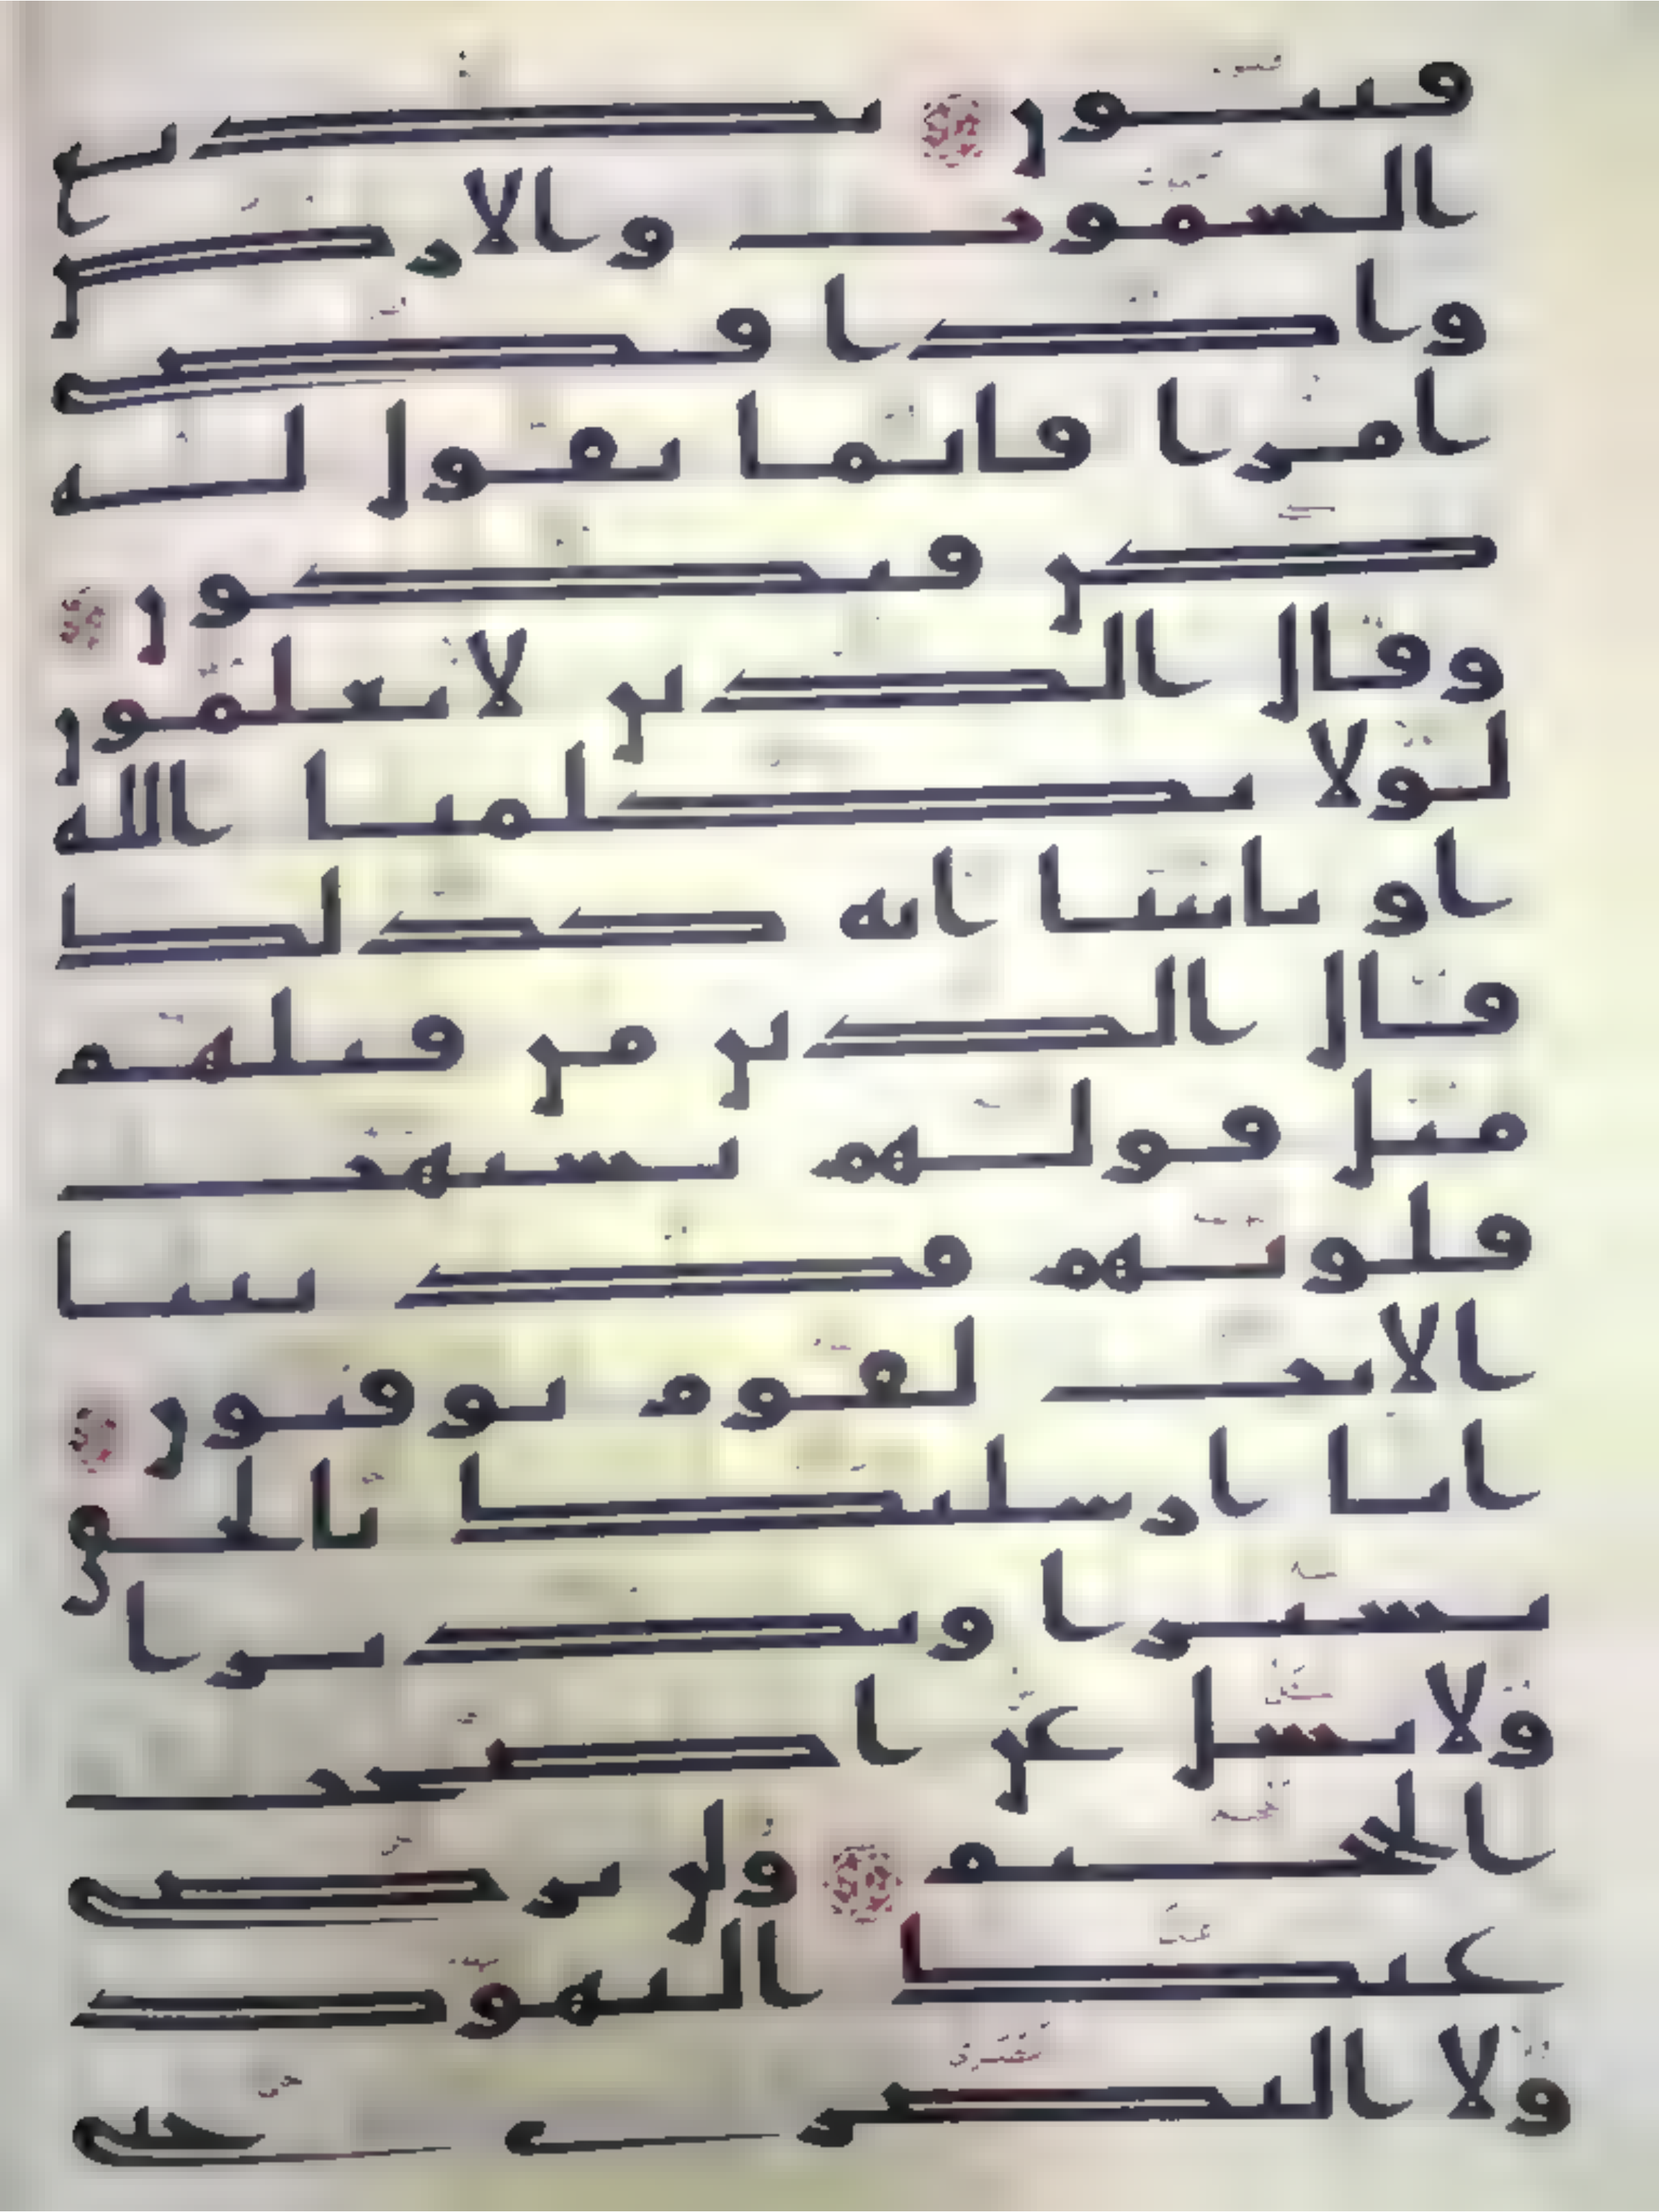 قنتون بديع
السموت والارض
واذا قضى
امرا فانما يقول له
كن فيكون
وقال الذين لا يعلمون
لولا يكلمنا الله
او تاتينا ايه كذلك
قال الذين من قبلهم
مثل قولهم تشبهت
قلوبهم قد بينا
الايت لقوم يوقنون
انا ارسلنك بالحق
بشيرا ونذيرا
ولا تسل عن اصحب
الجحيم ولن ترضى
عنك اليهود
ولا النصرى حتى